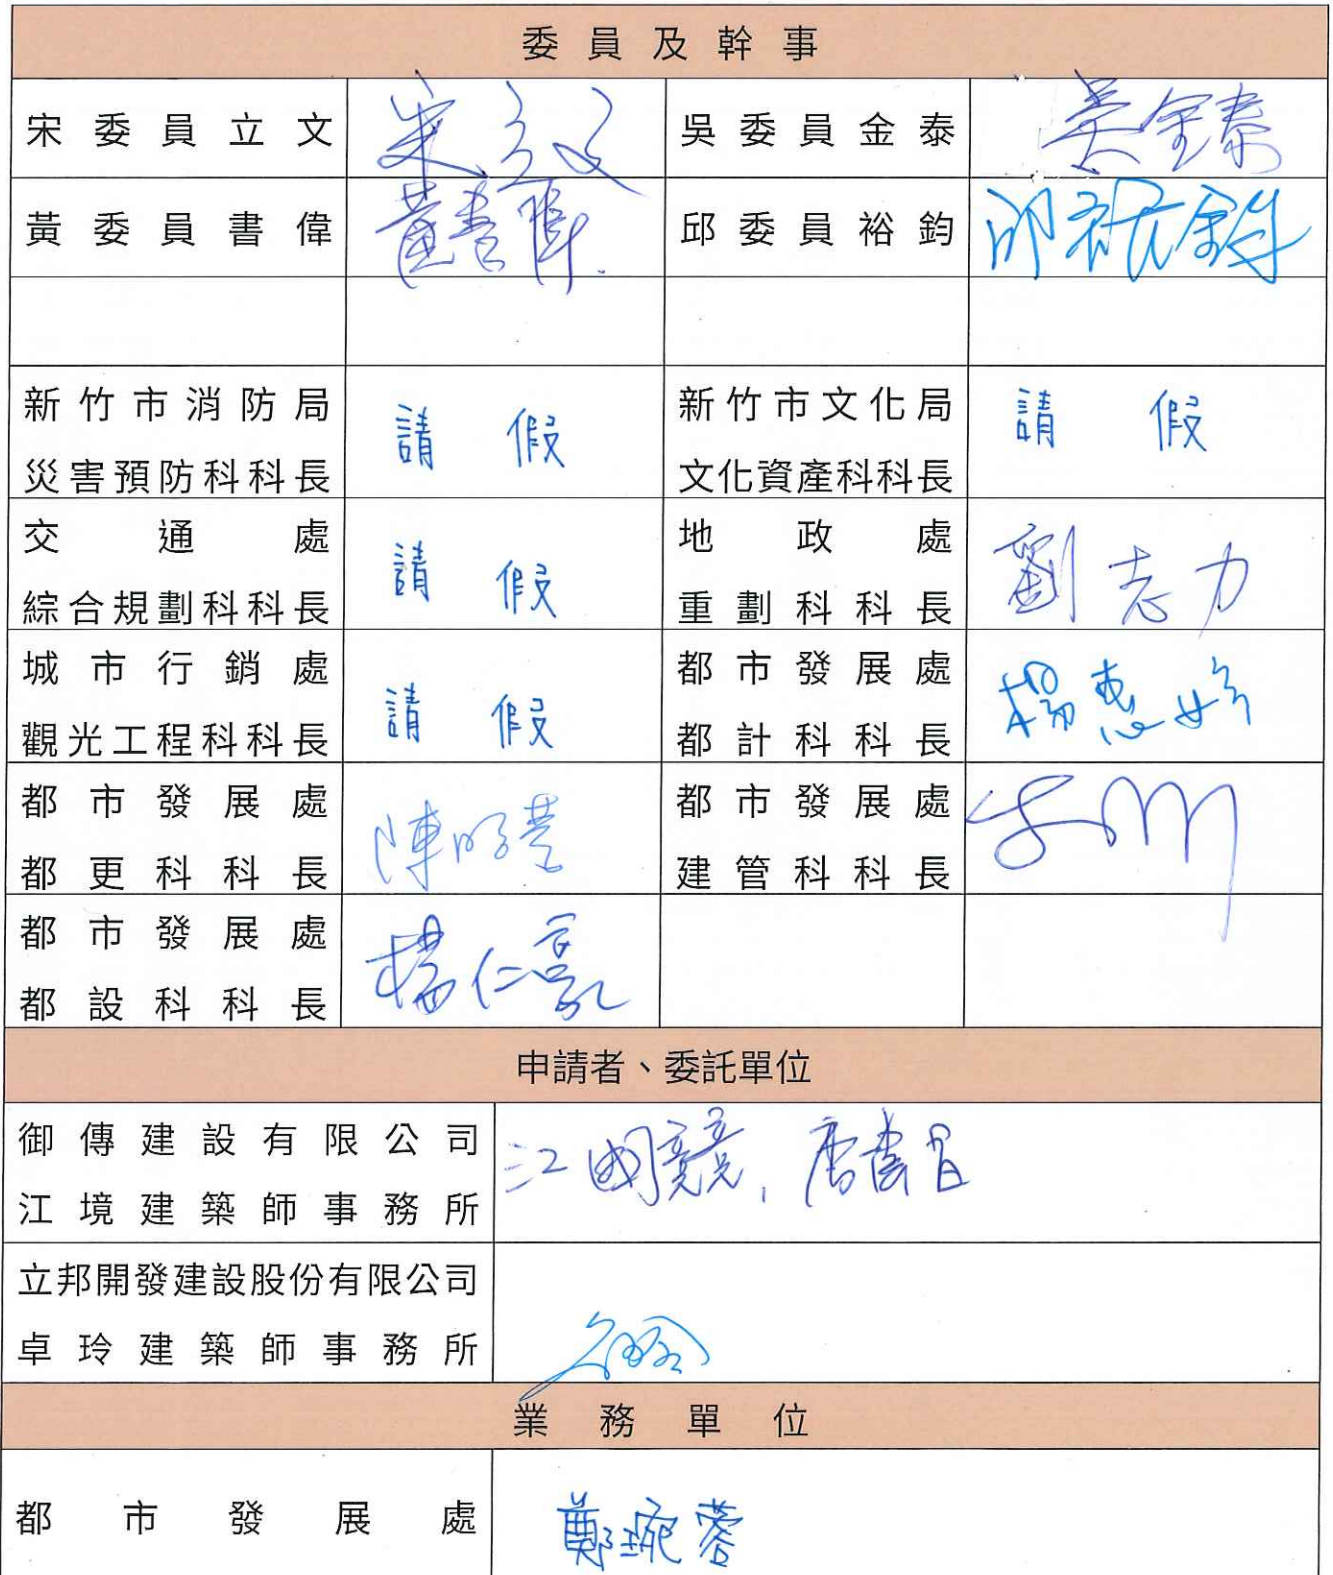 委員及幹事
宋委員立文 宋立文 吳委員金泰 吳金泰
黃委員書偉 黃書偉 邱委員裕鈞 邱裕鈞
新竹市消防局
災害預防科科長 請假
新竹市文化局
文化資產科科長 請假
交通處
綜合規劃科科長 請假
地政處
重劃科科長 劉志力
城市行銷處
觀光工程科科長 請假
都市發展處
都計科科長 楊惠
都市發展處
都更科科長 陳明
都市發展處
建管科科長
都市發展處
都設科科長 楊仁
申請者、委託單位
御傳建設有限公司
江境建築師事務所 江國競、唐
立邦開發建設股份有限公司
卓玲建築師事務所
業務單位
都市發展處 鄭琬蓉